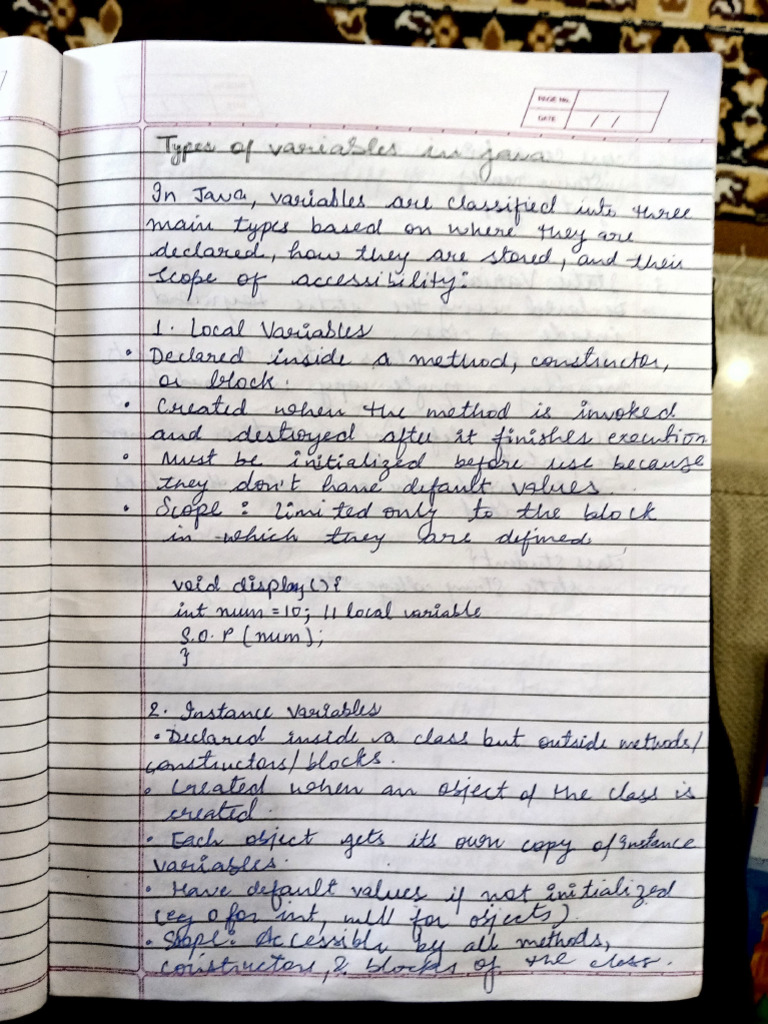 PAGE No.
DATE / /
Types of variables in java
In Java, variables are classified into three
main types based on where they are
declared, how they are stored, and their
scope of accessibility:
1. Local Variables
• Declared inside a method, constructor,
or block.
• Created when the method is invoked
and destroyed after it finishes execution
• Must be initialized before use because
they don't have default values.
• Scope: limited only to the block
in which they are defined
void display(){
int num = 10; // local variable
S.O.P (num);
}
2. Instance variables
• Declared inside a class but outside methods/
constructors/blocks.
• Created when an object of the class is
created.
• Each object gets its own copy of instance
variables.
• Have default values if not initialized
(eg 0 for int, null for objects).
• Scope: Accessible by all methods,
constructors, & blocks of the class.